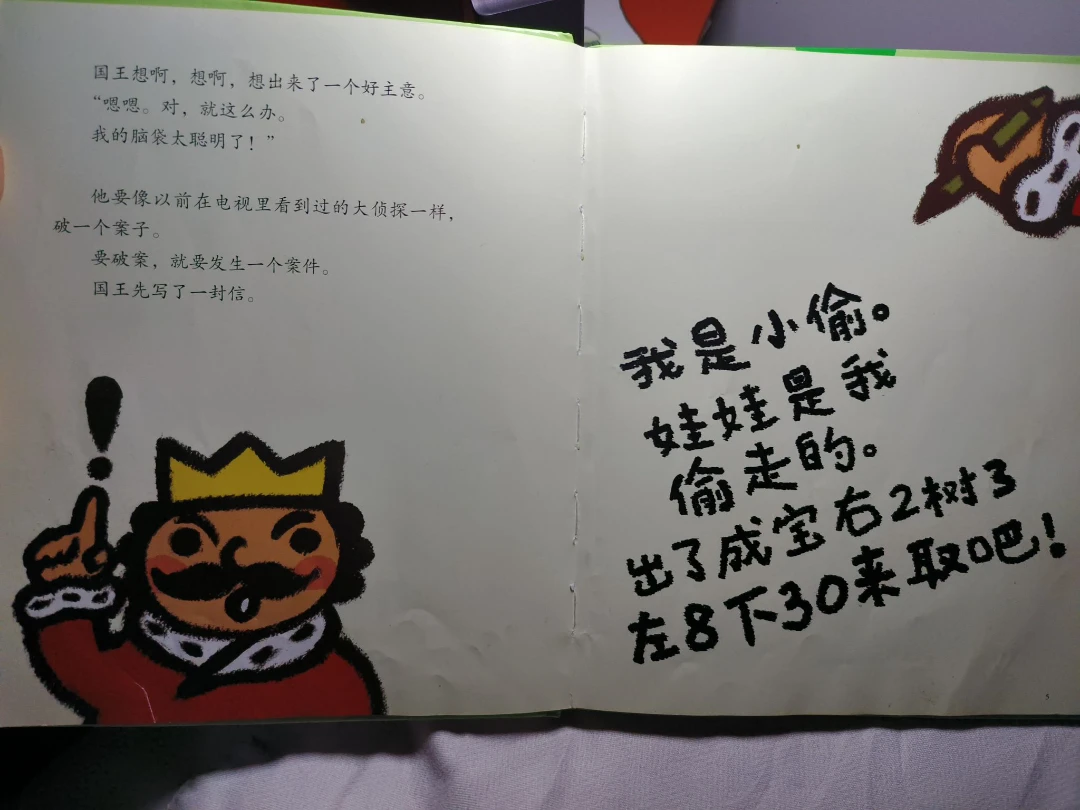 国王想啊，想啊，想出来了一个好主意。
“嗯嗯。对，就这么办。
我的脑袋太聪明了！”
他要像以前在电视里看到过的大侦探一样，
破一个案子。
要破案，就要发生一个案件。
国王先写了一封信。
我是小偷。
娃娃是我
偷走的。
出了成宝右2树3
左8下30来取吧！
5